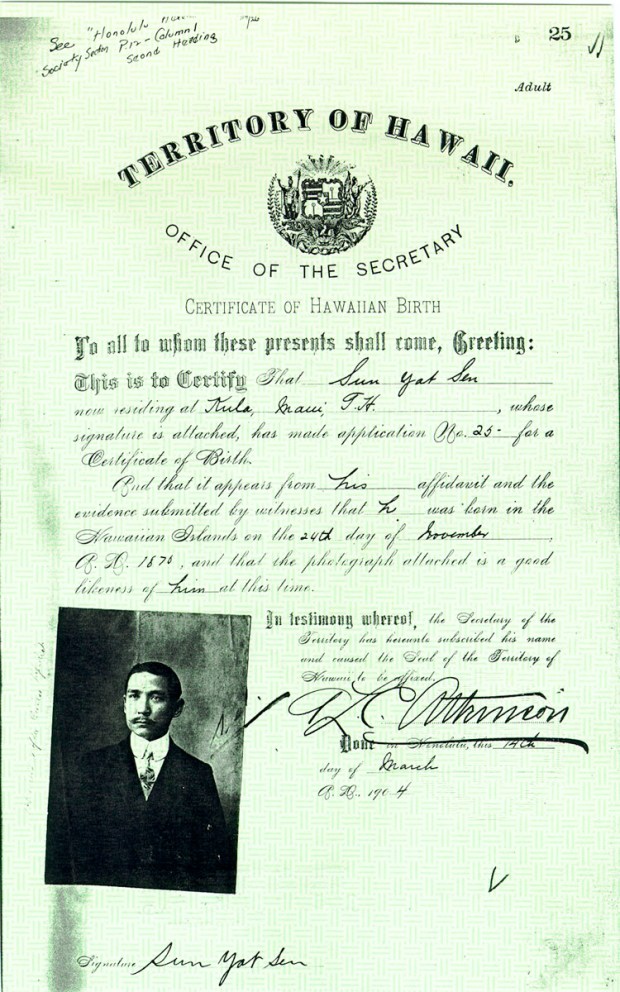 See "Honolulu
Society Section P.12 - Column 1
Second Heading
25
Adult
TERRITORY OF HAWAII.
OFFICE OF THE SECRETARY
CERTIFICATE OF HAWAIIAN BIRTH
To all to whom these presents shall come, Greeting:
This is to Certify That Sun Yat Sen
now residing at Kula, Maui, T.H. , whose
signature is attached, has made application No. 25- for a
Certificate of Birth.
And that it appears from his affidavit and the
evidence submitted by witnesses that h was born in the
Hawaiian Islands on the 24th day of November ,
A.D. 1870, and that the photograph attached is a good
likeness of him at this time.
In testimony whereof, the Secretary of the
Territory has hereunto subscribed his name
and caused the Seal of the Territory of
Hawaii to be affixed.
A. L. C. Atkinson
Done in Honolulu, this 14th
day of March
A.D. 1904
Signature Sun Yat Sen